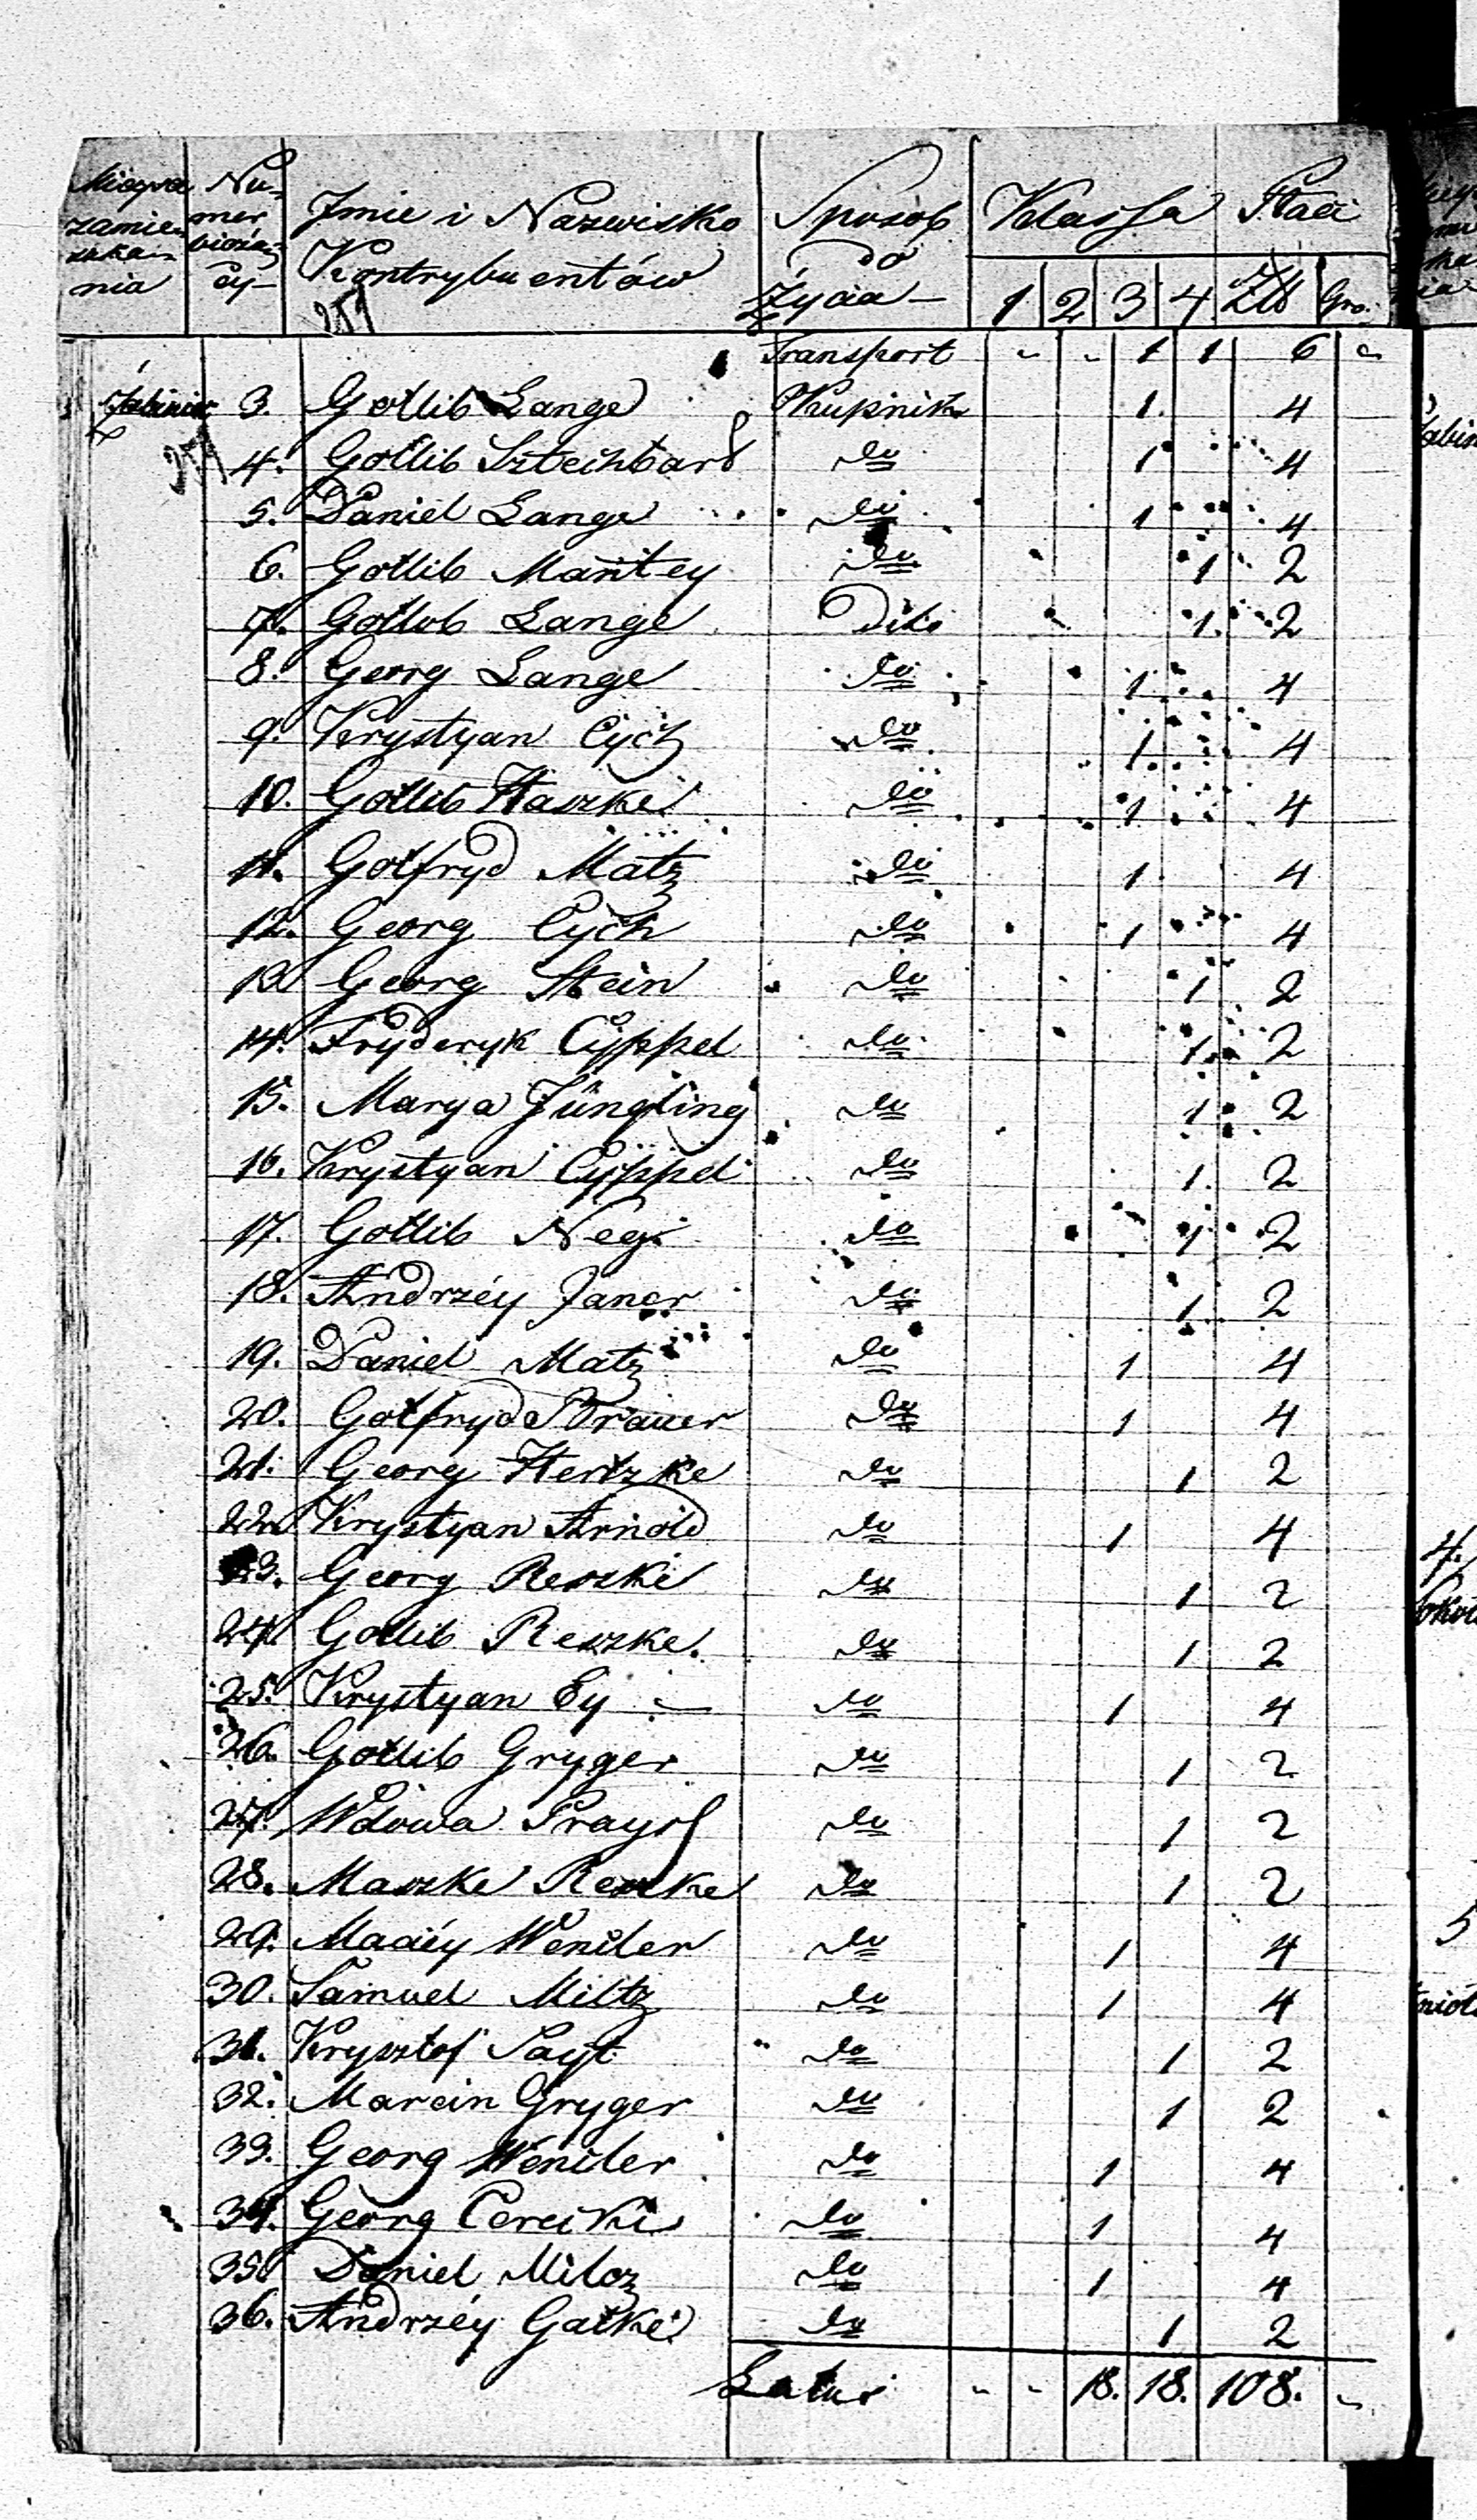 Mieysce zamieszkania Numer bieżący Jmie i Nazwisko Kontrybuentów Sposób do Życia Klassa 1 2 3 4 Płaci Złł Gro.
Transport - - 1 1 6 -
3. Gottlib Lange Okupnik 1. 4
4. Gottlib Szteinbard do 1 4
5. Daniel Lange do 1 4
6. Gottlib Mantey do 1 2
7. Gottlob Lange Dito 1. 2
8. Georg Lange do 1 4
9. Krystyan Cych do 1 4
10. Gottlib Haszke do 1 4
11. Gotfryd Matz do 1 4
12. Georg Cych do 1 4
13. Georg Stein do 1 2
14. Fryderyk Cyppel do 1 2
15. Marya Jüngling do 1 2
16. Krystyan Cyppel do 1. 2
17. Gottlib do 1 2
18. Andrzéy Janer do 1 2
19. Daniel Matz do 1 4
20. Gotfryd Brauer do 1 4
21. Georg Hertzke do 1 2
22. Krystyan Arnold do 1 4
23. Georg Reszke do 1 2
24. Gottlib Reszke. do 1 2
25. Krystyan Ey - do 1 4
26. Gottlib Gryger do 1 2
27. Wdowa Prays do 1 2
28. Maszke Reszke do 1 2
29. Maciéy Wendler do 1 4
30. Samuel Miltz do 1 4
31. Krysztof Sayt do 1 2
32. Marcin Gryger do 1 2
33. Georg Wendler do 1 4
34. Georg do 1 4
35. Daniel Milcz do 1 4
36. Andrzéy Gatke do 1 2
Latus - - 18. 18. 108. -